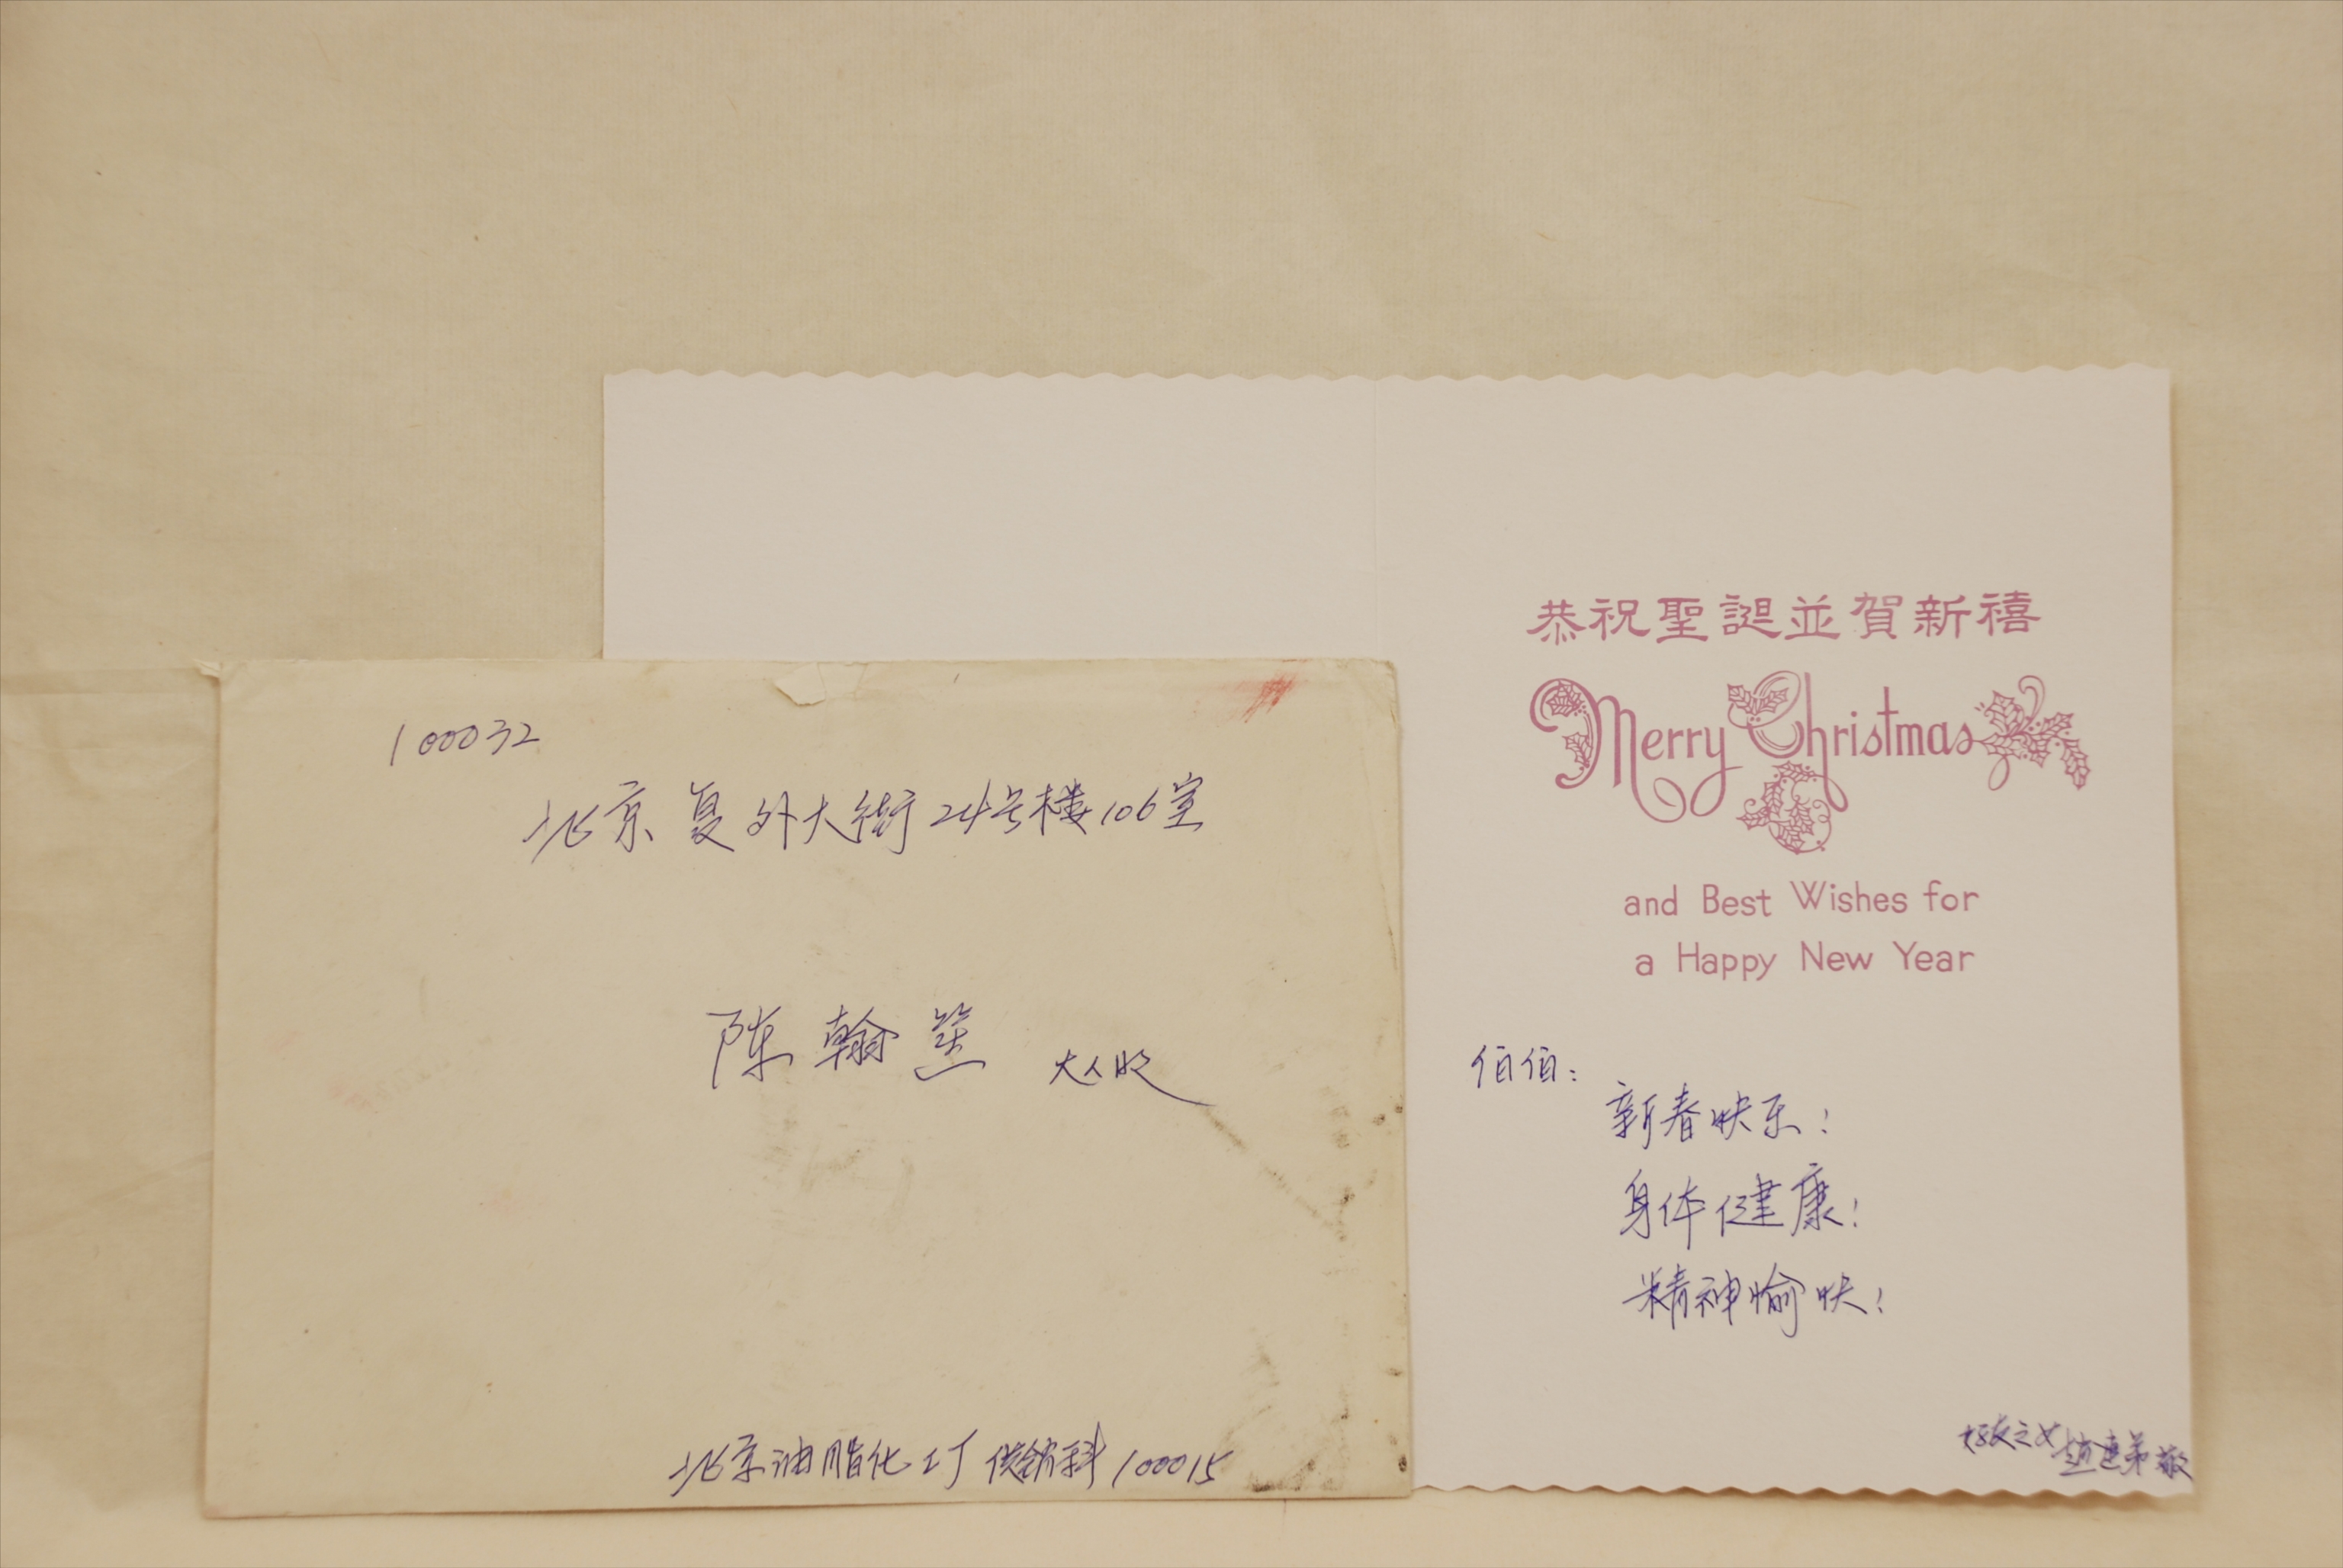 100032
北京复外大街24号楼106室
陈翰笙 大人收
北京油脂化工厂供销科100015
恭祝聖誕並賀新禧
Merry Christmas
and Best Wishes for
a Happy New Year
伯伯:
新春快乐!
身体健康!
精神愉快!
好友之女赵连弟敬